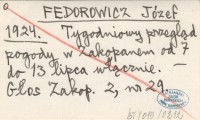 FEDOROWICZ Józef
1924. Tygodniowy przegląd
pogody w Zakopanem od 7
do 13 lipca włącznie. –
Głos Zakop. 2, nr 29.